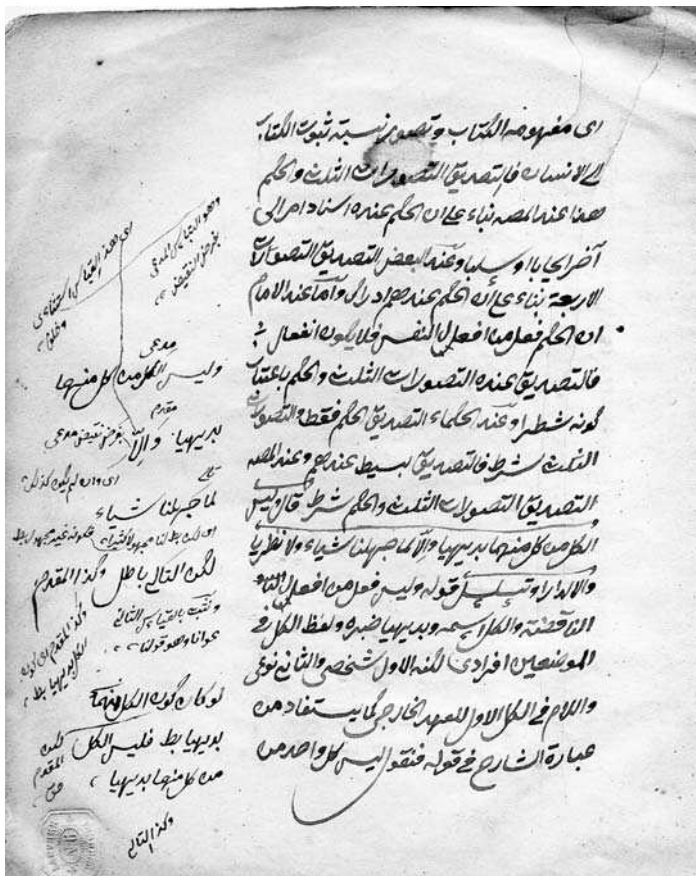 اى مفهومه الكتاب وتصور نسبته ثبوت الكتاب
الى الانسان فالتصديق التصورات الثلث والحكم
هذا عند المصه بناء على ان الحكم عنده اسناد امر الى
آخر ايجابا او سلبا وعند البعض التصديق التصورات
الاربعة بناء على ان الحكم عندهم ادراك واما عند الامام
ان الحكم فعل من افعال النفس فلا يكون انفعال
فالتصديق عنده التصورات الثلث والحكم باعتبار
كونه شطرا وعند الحكماء التصديق الحكم فقط والتصورات
الثلث شرط فالتصديق بسيط عندهم وعند المصه
التصديق التصورات الثلث والحكم شرط قال وليس
الكل من كل منهما بديهيا والا لما جهلنا شياء ولا نظريا
والا لدار او تسلسل قوله وليس فعل من افعال
الناقصة والكل اسمه وبديهيا خبره ولفظ الكل فى
الموضعين افرادى لكنه الاول شخصى والثانى نوعى
واللام فى الكل الاول للعهد الخارجى كما يستفاد من
عبارة الشارح فى قوله فنقول ليس كل واحد من
اى هذا القياس استثنائى
وهو القياس المدعى
بفرض النقيض
مدعى
وليس الكل من كل منهما
مقدم
بديهيا والا بفرض نقيض مدعى
اى وان لم يكن كذلك
لما جهلنا شياء
لكن التالى باطل وكذا المقدم
لو كان كون الكل منهما
بديهيا بط فليس الكل
من كل منهما بديهيا
وكذا التالى